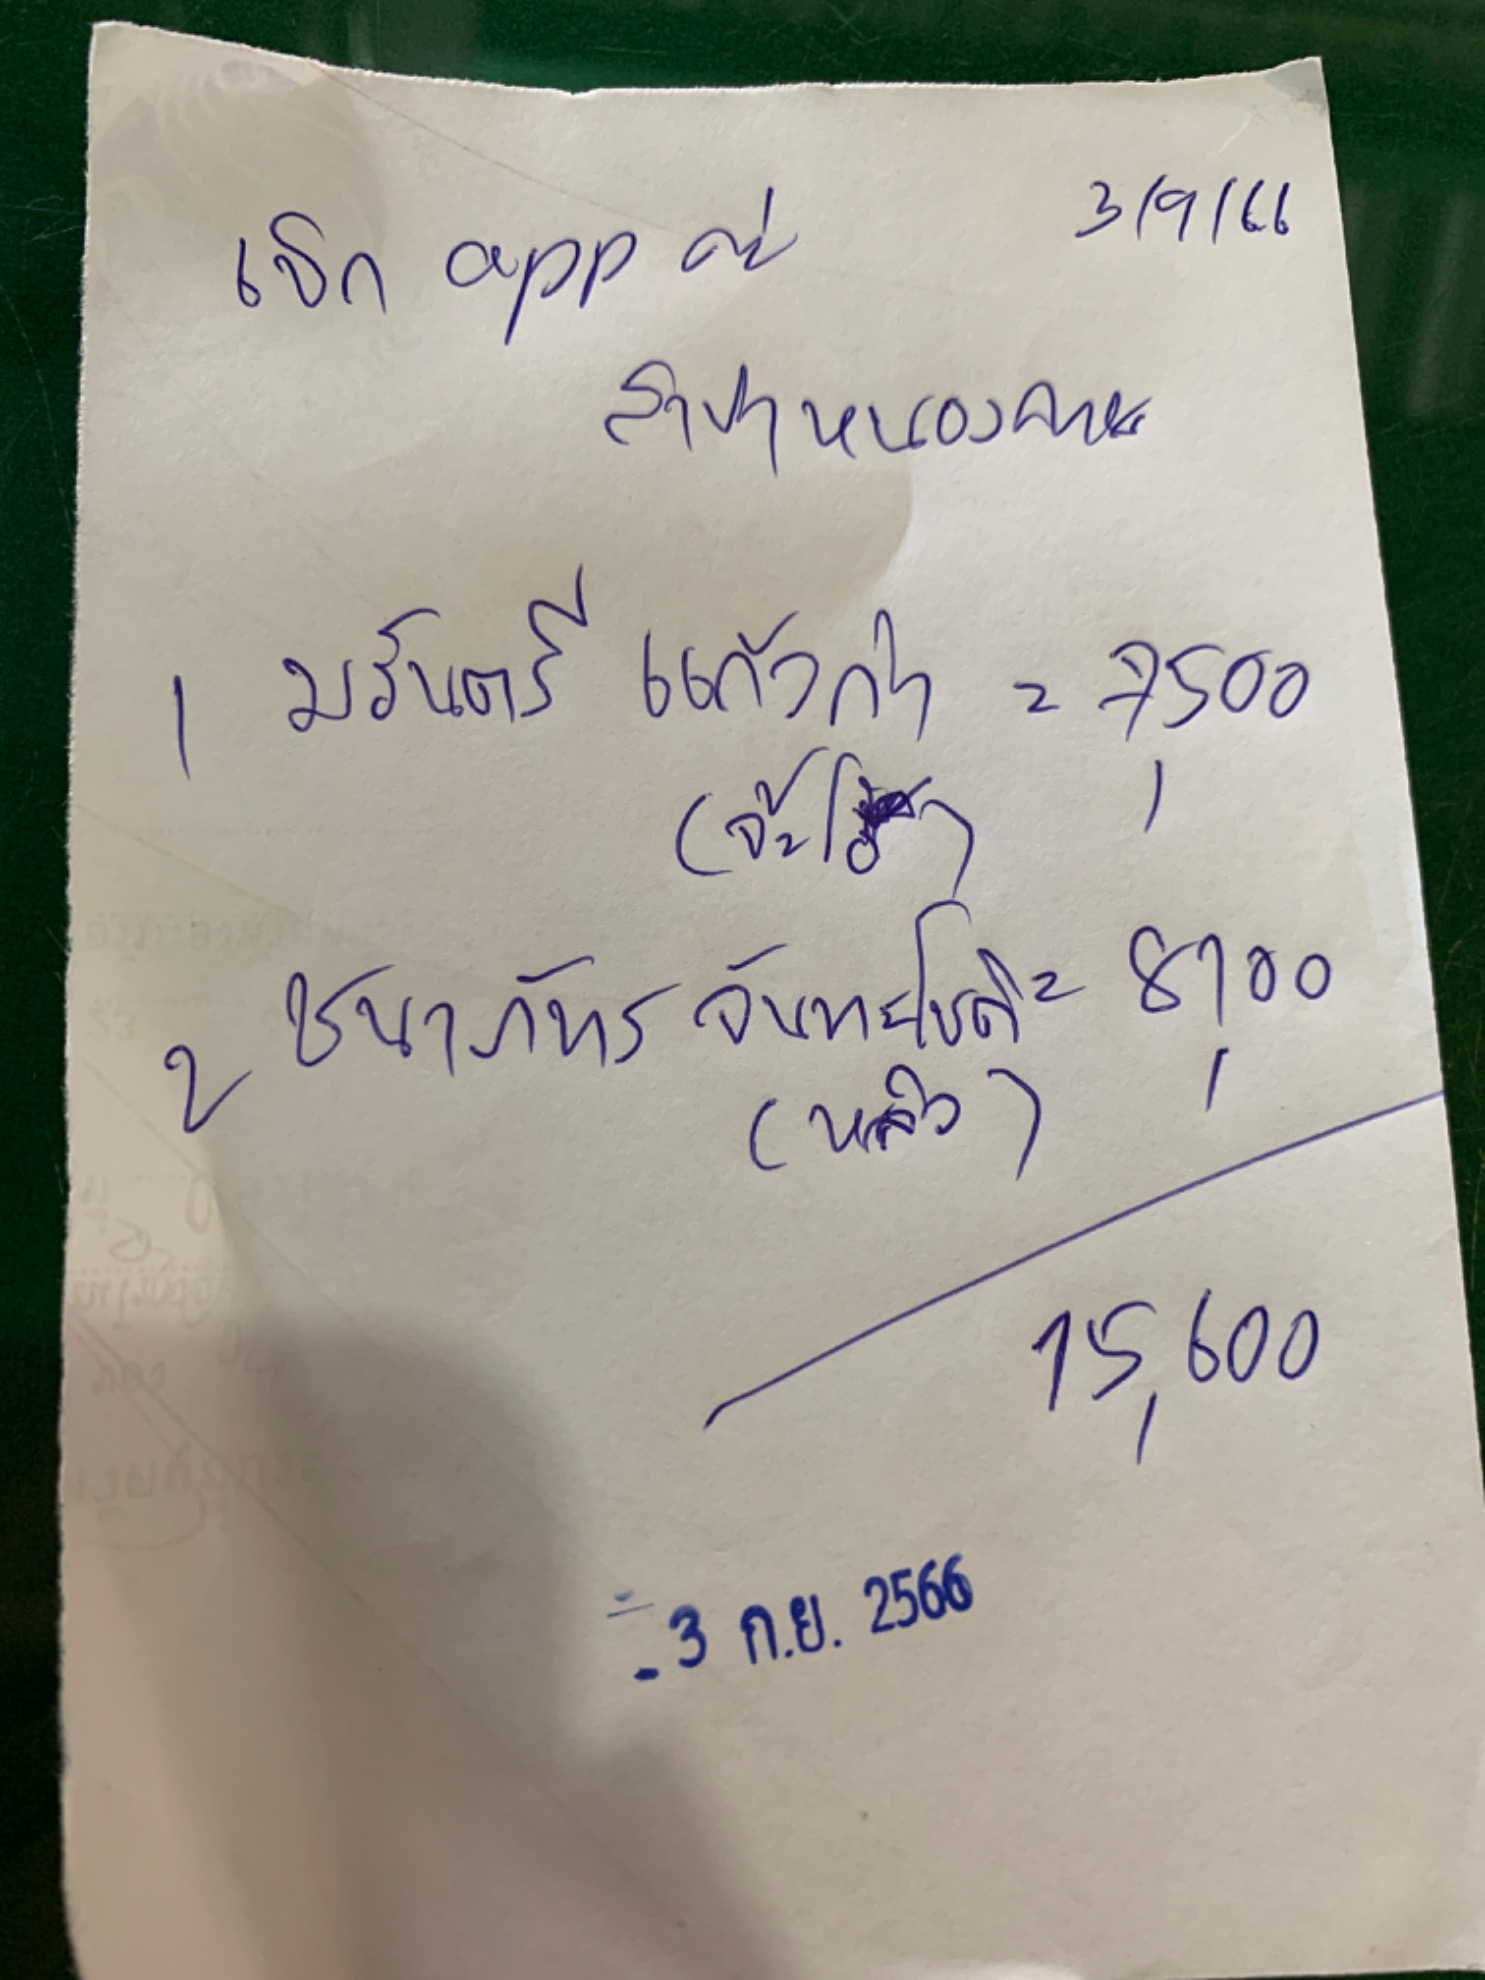 3/9/66
เบิก app ค่า
สาขาหนองคาย
1 มรันตรี แก้วกำ = 7,500
(จ๊ะโอ๋)
2 ชนาภัทร จันทะโชติ = 8,100
(หลิว)
15,600
- 3 ก.ย. 2566